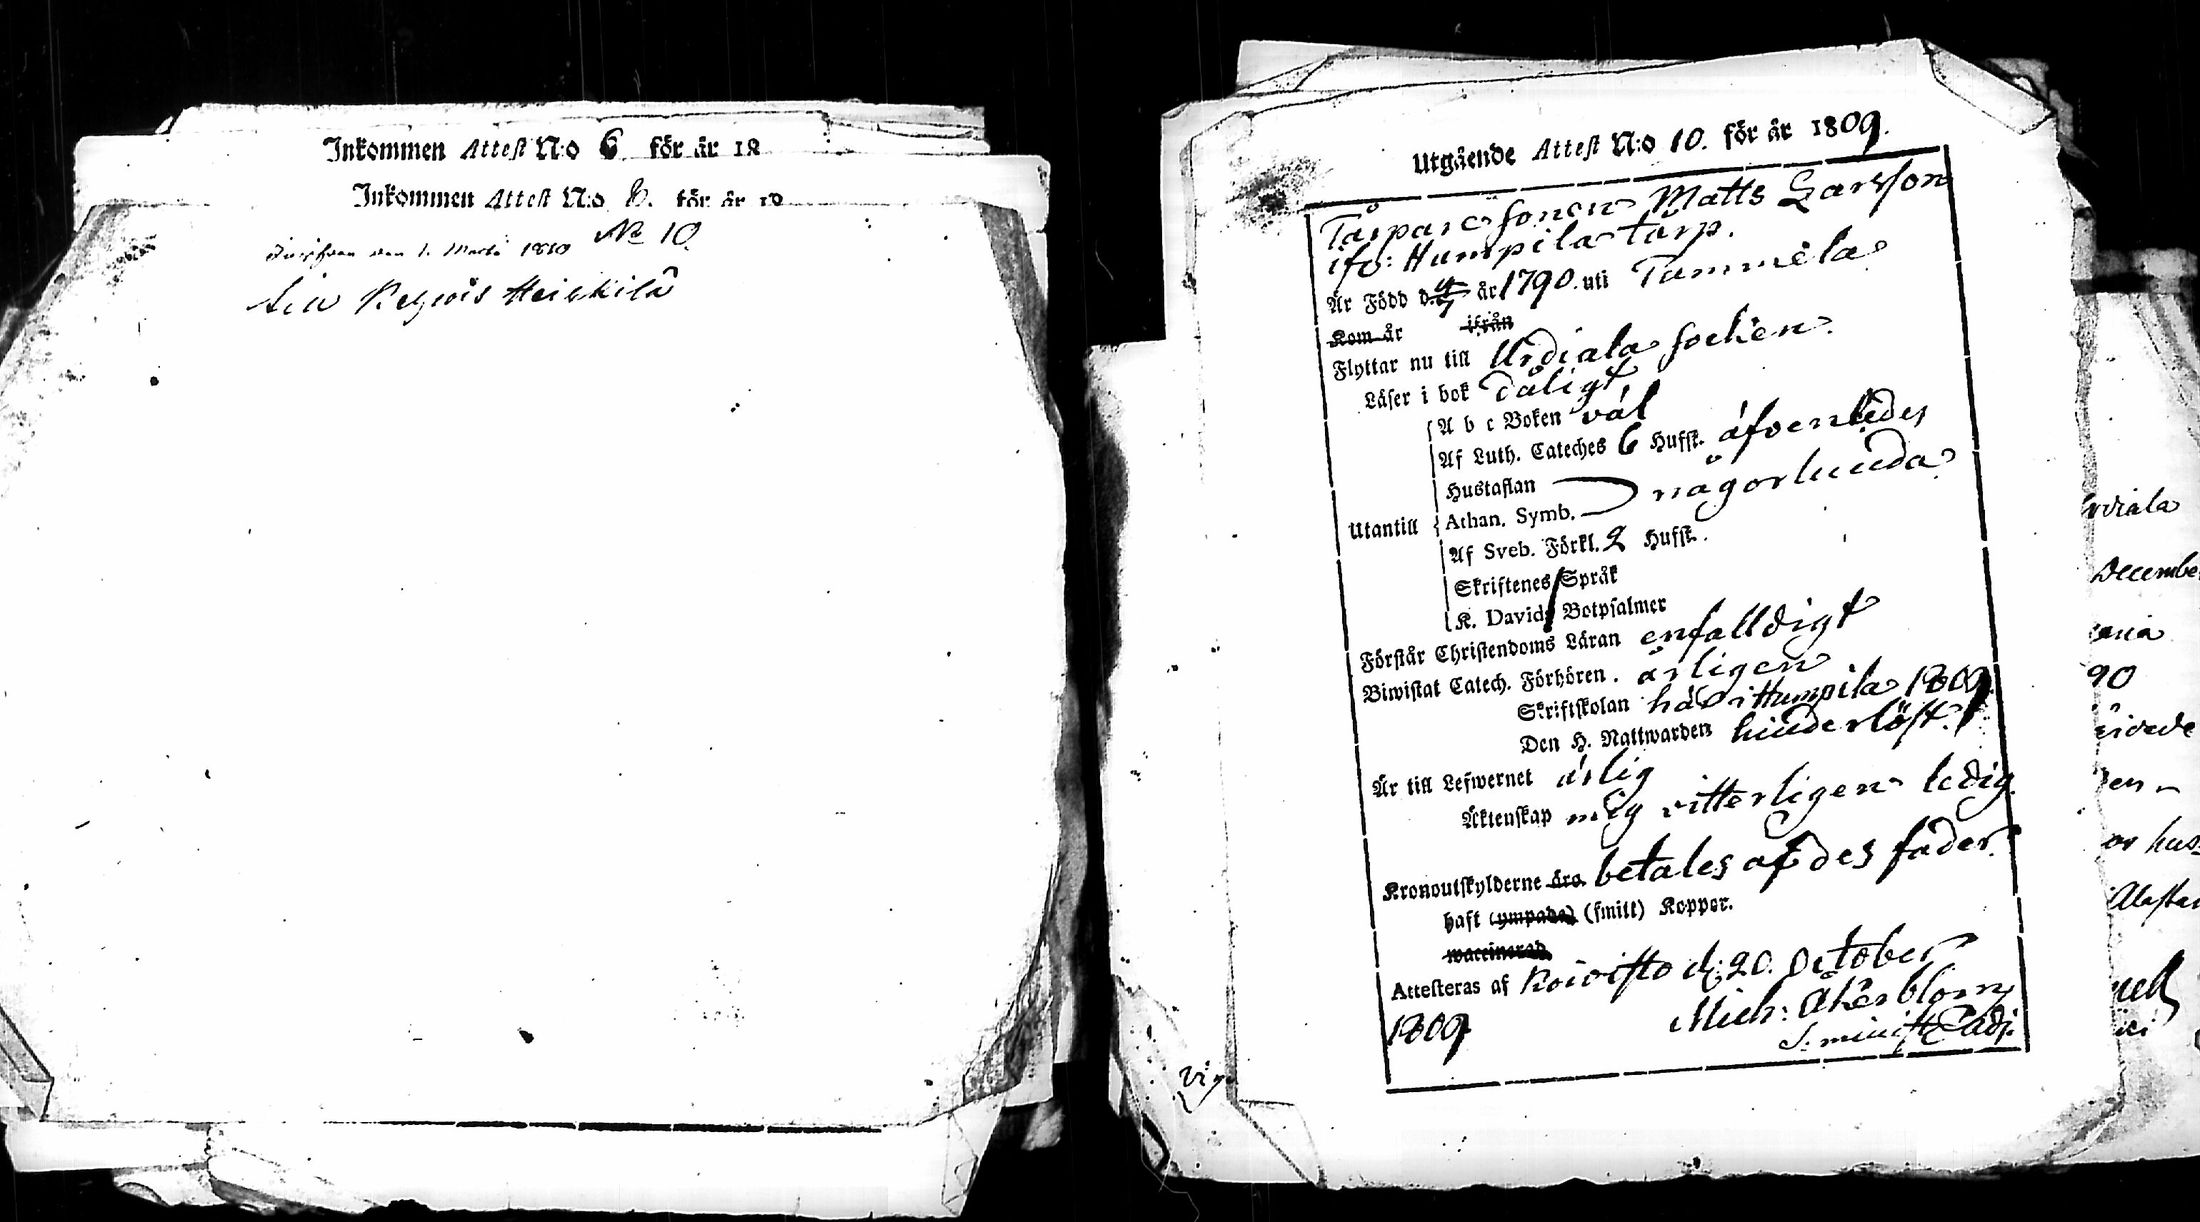 Inkommen Attest N:o 6 för år 18
Inkommen Attest N:o 8. för år 18
den 1. Martii 1810 No 10.
Heickilä
Utgående Attest N:o 10. för år 1809.
Torparesonen Matts Larsson
ifr: Humpila torp.
Är Född d. 9/7 år 1790. uti Tammela
Kom år ifrån
Flyttar nu till Urdiala socken.
Läser i bok dåligt
A b c Boken väl
Af Luth. Cateches 6 Hufst. äfvenledes
Hustaflan
Athan. Symb. någorlunda
Utantill
Af Sveb. Förkl. 2 Hufst.
Skriftenes Språk
K. Davids Botpsalmer
Förstår Christendoms Läran enfalldigt
Biwistat Catech. Förhören. årligen
Skriftskolan här i Humpila 1809
Den H. Nattwarden hinderlöst.
Är till Lefwernet ärlig
Äktenskap mig vitterligen ledig.
Kronoutskylderne äro betales af des fader.
haft (ympade) (smitt) Koppor.
waccinerad
Attesteras af Koivisto d. 20. October
1809 Mich: Åkerblom
S. minist. adj.
rdiala
December
90
or hus